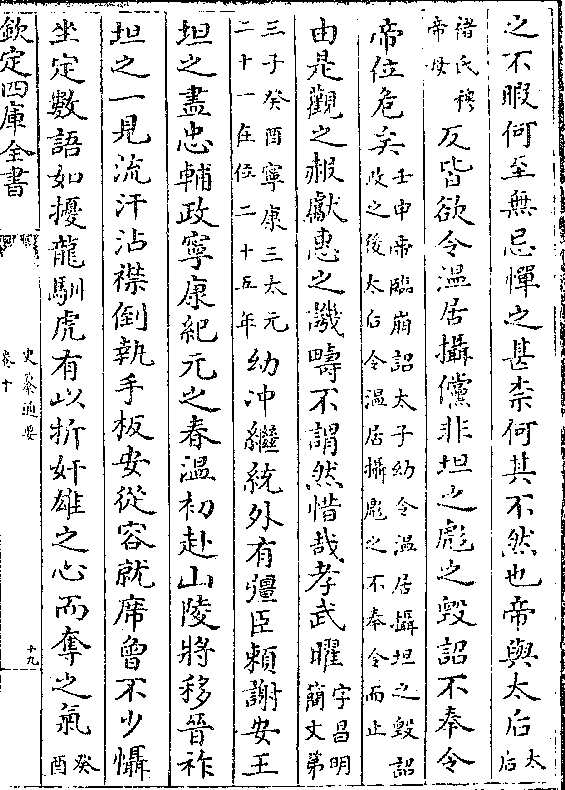 之不暇何至無忌憚之甚柰何其不然也帝與太后太后
褚氏穆帝母反皆欲令温居攝儻非坦之彪之毀詔不奉令
帝位危矣壬申帝臨崩詔太子幼令温居攝坦之毀詔改之後太后令温居攝彪之不奉令而止
由是觀之赧獻惠之譏疇不謂然惜哉孝武曜字昌明簡文第
三子癸酉寧康三太元二十一在位二十五年幼冲繼統外有彊臣頼謝安王
坦之盡忠輔政寧康紀元之春温初赴山陵將移晉祚
坦之一見流汗沾襟倒執手板安從容就席曾不少懾
坐定數語如擾龍馴虎有以折奸雄之心而奪之氣癸酉
欽定四庫全書
史纂通要
卷十
十九